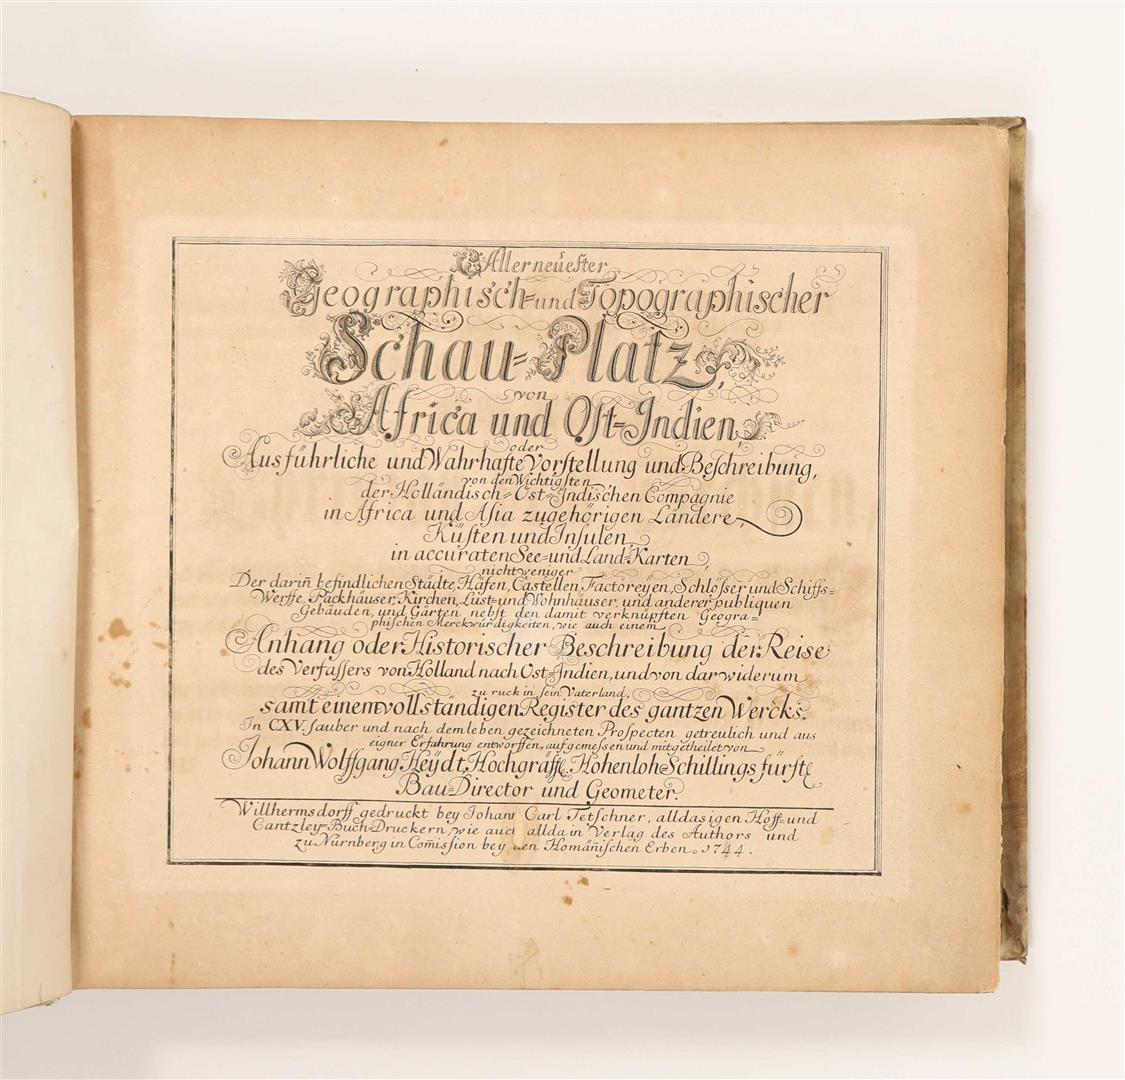 Allerneuester
Geographisch- und Topographischer
Schau-Platz,
von
Africa und Ost-Indien,
oder
Ausführliche und Wahrhafte Vorstellung und Beschreibung,
von den Wichtigsten,
der Holländisch-Ost-Indischen Compagnie
in Africa und Asia zugehörigen Ländere
Küsten und Insulen,
in accuraten See- und Land-Karten,
nicht weniger
Der dariñ befindlichen Städte, Häfen, Castellen, Factoreyen, Schlösser und Schiffs-
Werffe, Packhäuser, Kirchen, Lust- und Wohnhäuser, und anderer publiquen
Gebäuden, und Gärten nebst den damit verknüpften Geogra-
phischen Merckwürdigkeiten, wie auch einem
Anhang oder Historischer Beschreibung der Reise
des Verfassers von Holland nach Ost-Indien, und von dar widerum
zu ruck in sein Vaterland,
samt einem vollständigen Register des gantzen Wercks.
In CXV. sauber und nach dem leben gezeichneten Prospecten getreulich und aus
eigner Erfahrung entworffen, aufgemessen und mitgetheilet von
Johann Wolffgang Heydt, Hochgräffl. Hohenloh-Schillingsfürstl
Bau-Director und Geometer.
Willhermsdorff gedruckt bey Johann Carl Tetschner, alldasigen Hoff- und
Cantzley-Buch-Druckern, wie auch allda in Verlag des Authors und
zu Nürnberg in Com̃ission bey den Homäñischen Erben. 1744.